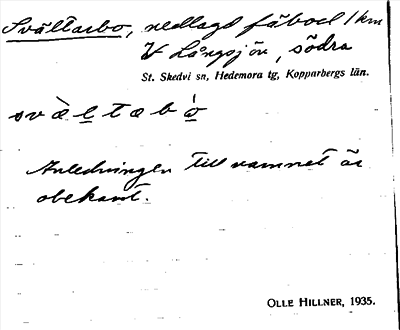 Svältarbo, nedlagd fäbod 1 km
V Långsjön, södra
St. Skedvi sn, Hedemora tg, Kopparbergs län.
svæ̀ltabò
Anledningen till namnet är
obekant.
OLLE HILLNER, 1935.